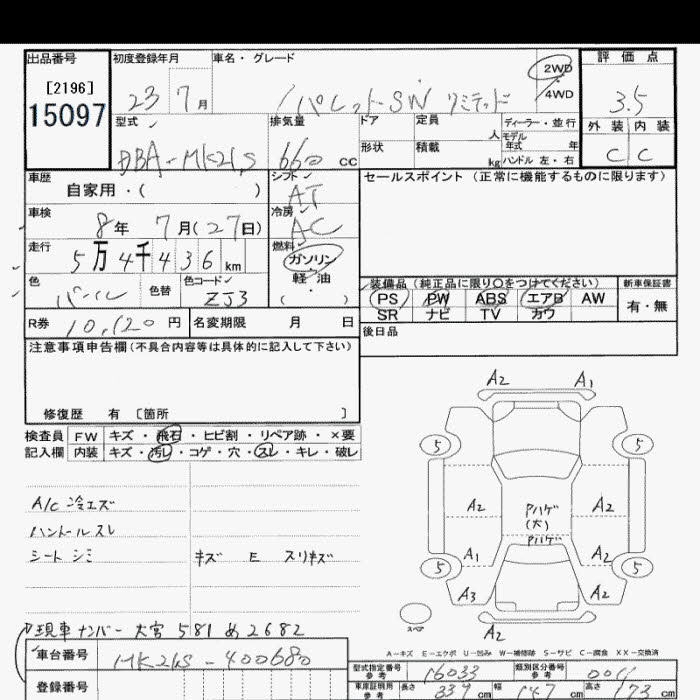 出品番号 初度登録年月 車名・グレード 評価点
[2196] 2WD
15097 23 7月 パレットSW リミテッド 4WD 3.5
型式 排気量 ドア 定員 ディーラー・並行 外装 内装
人 モデル年式 年
DBA-MK21S 660 cc 形状 積載 kg ハンドル 左・右 C C
車歴 シフト セールスポイント (正常に機能するものに限ります)
自家用・( ) AT
車検 冷房
8年 7月(27日) AC
走行 燃料
5万4千436km ガソリン
色 色替 色コード 軽油 装備品 (純正品に限り○をつけてください) 新車保証書
パール ZJ3 ( ・ ) PS PW ABS エアB AW 有・無
SR ナビ TV カワ
R券 10,120円 名変期限 月 日 後日品
注意事項申告欄(不具合内容等は具体的に記入して下さい)
修復歴 有 [箇所 ]
検査員 FW キズ・飛石・ヒビ割・リペア跡・×要
記入欄 内装 キズ・汚レ・コゲ・穴・スレ・キレ・破レ
A2 A1
5 5
A/C 冷エズ A2 Aハゲ(大) A2
ハンドルスレ Aハゲ
シートシミ キズ E スリキズ A1 A2
5 5
A3 A2
スペア A2
現車ナンバー 大宮 581 め 2682
A-キズ E-エクボ U-凹み W-補修跡 S-サビ C-腐食 XX-交換済
車台番号 MK21S-400680 型式指定番号 参考 16033 類別区分番号 参考
登録番号 車庫証明用 参考 長さ 339 cm 幅 147 cm 高さ 173 cm